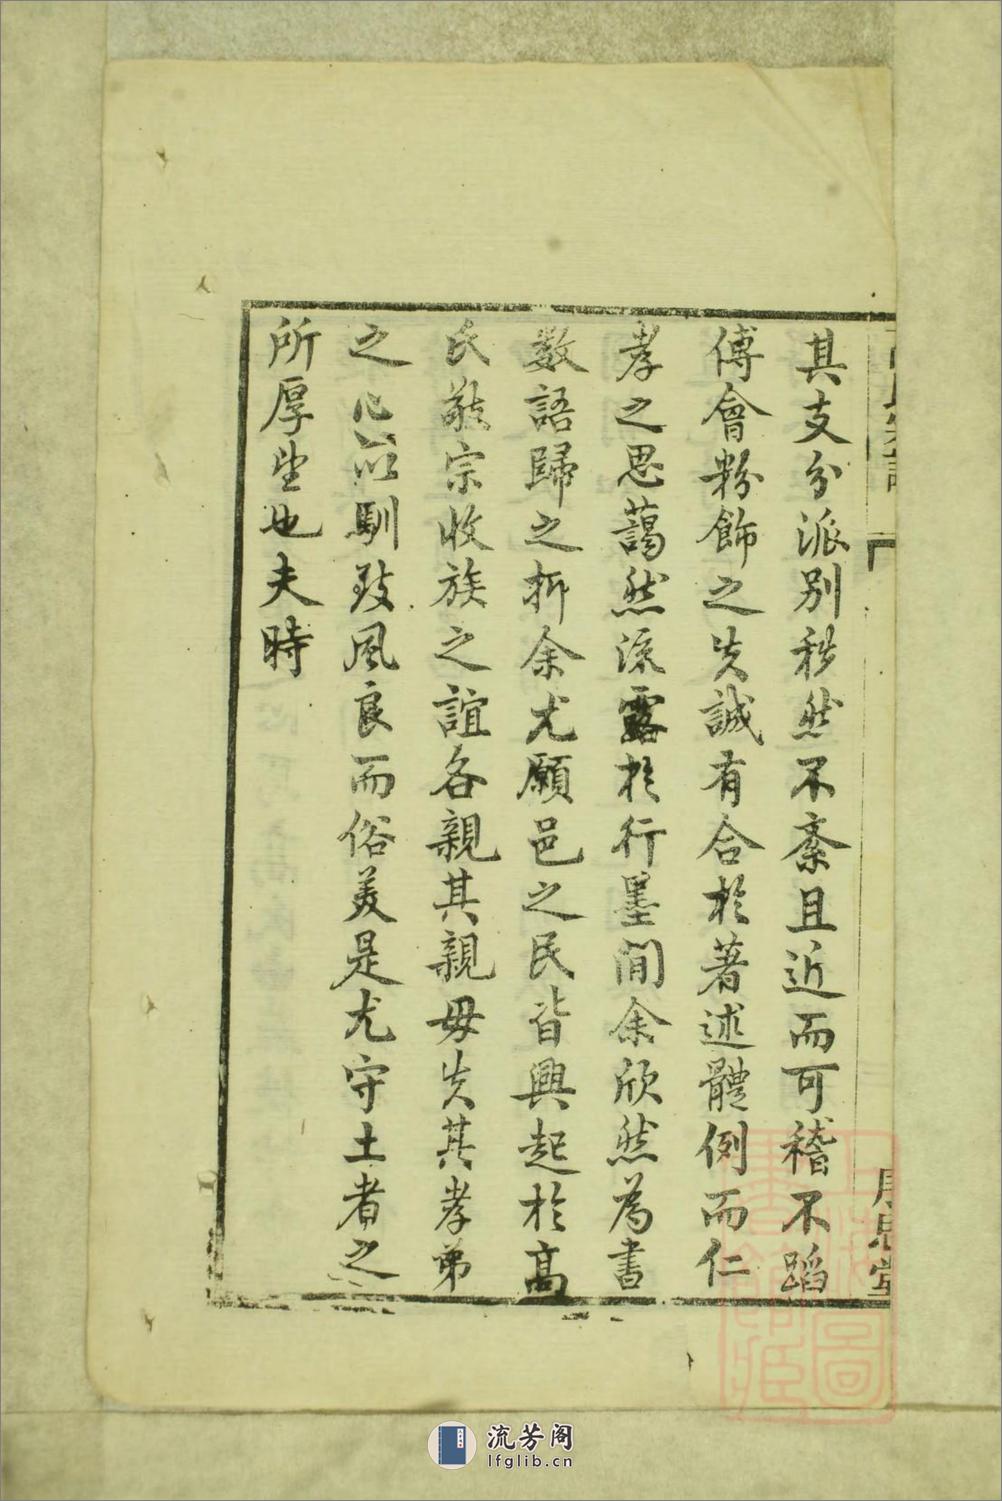 其支分派別秩然不紊且近而可稽不蹈
傅會粉飾之失誠有合於著述體例而仁
孝之思藹然流露於行墨間余欣然為書
數語歸之抑余尤願邑之民皆興起於高
氏敬宗收族之誼各親其親毋失其孝弟
之心以馴致風良而俗美是尤守土者之
所厚望也夫時
流芳阁
lfglib.cn